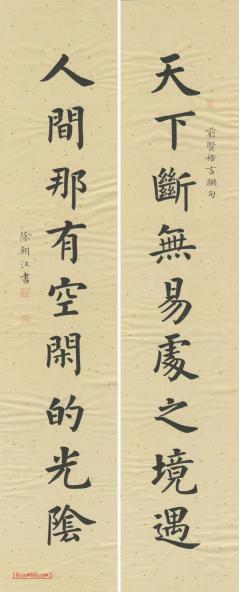 天下斷無易處之境遇
前賢格言聯句
人間那有空閑的光陰
徐朝江書
18cm*88cm*2